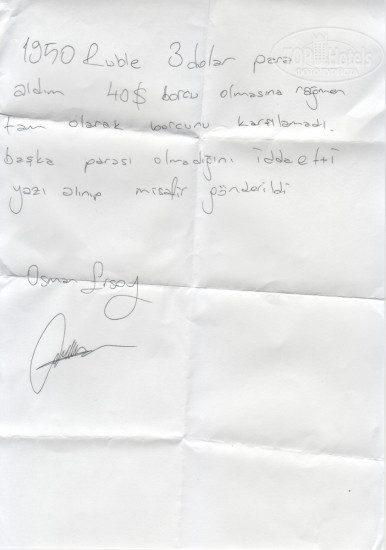 1950 Ruble 3 dolar para
aldım 40$ borcu olmasına rağmen
tam olarak borcunu karşılamadı.
başka parası olmadığını iddaetti
yazı alınıp misafir gönderildi
Osman Ersoy
TopHotels